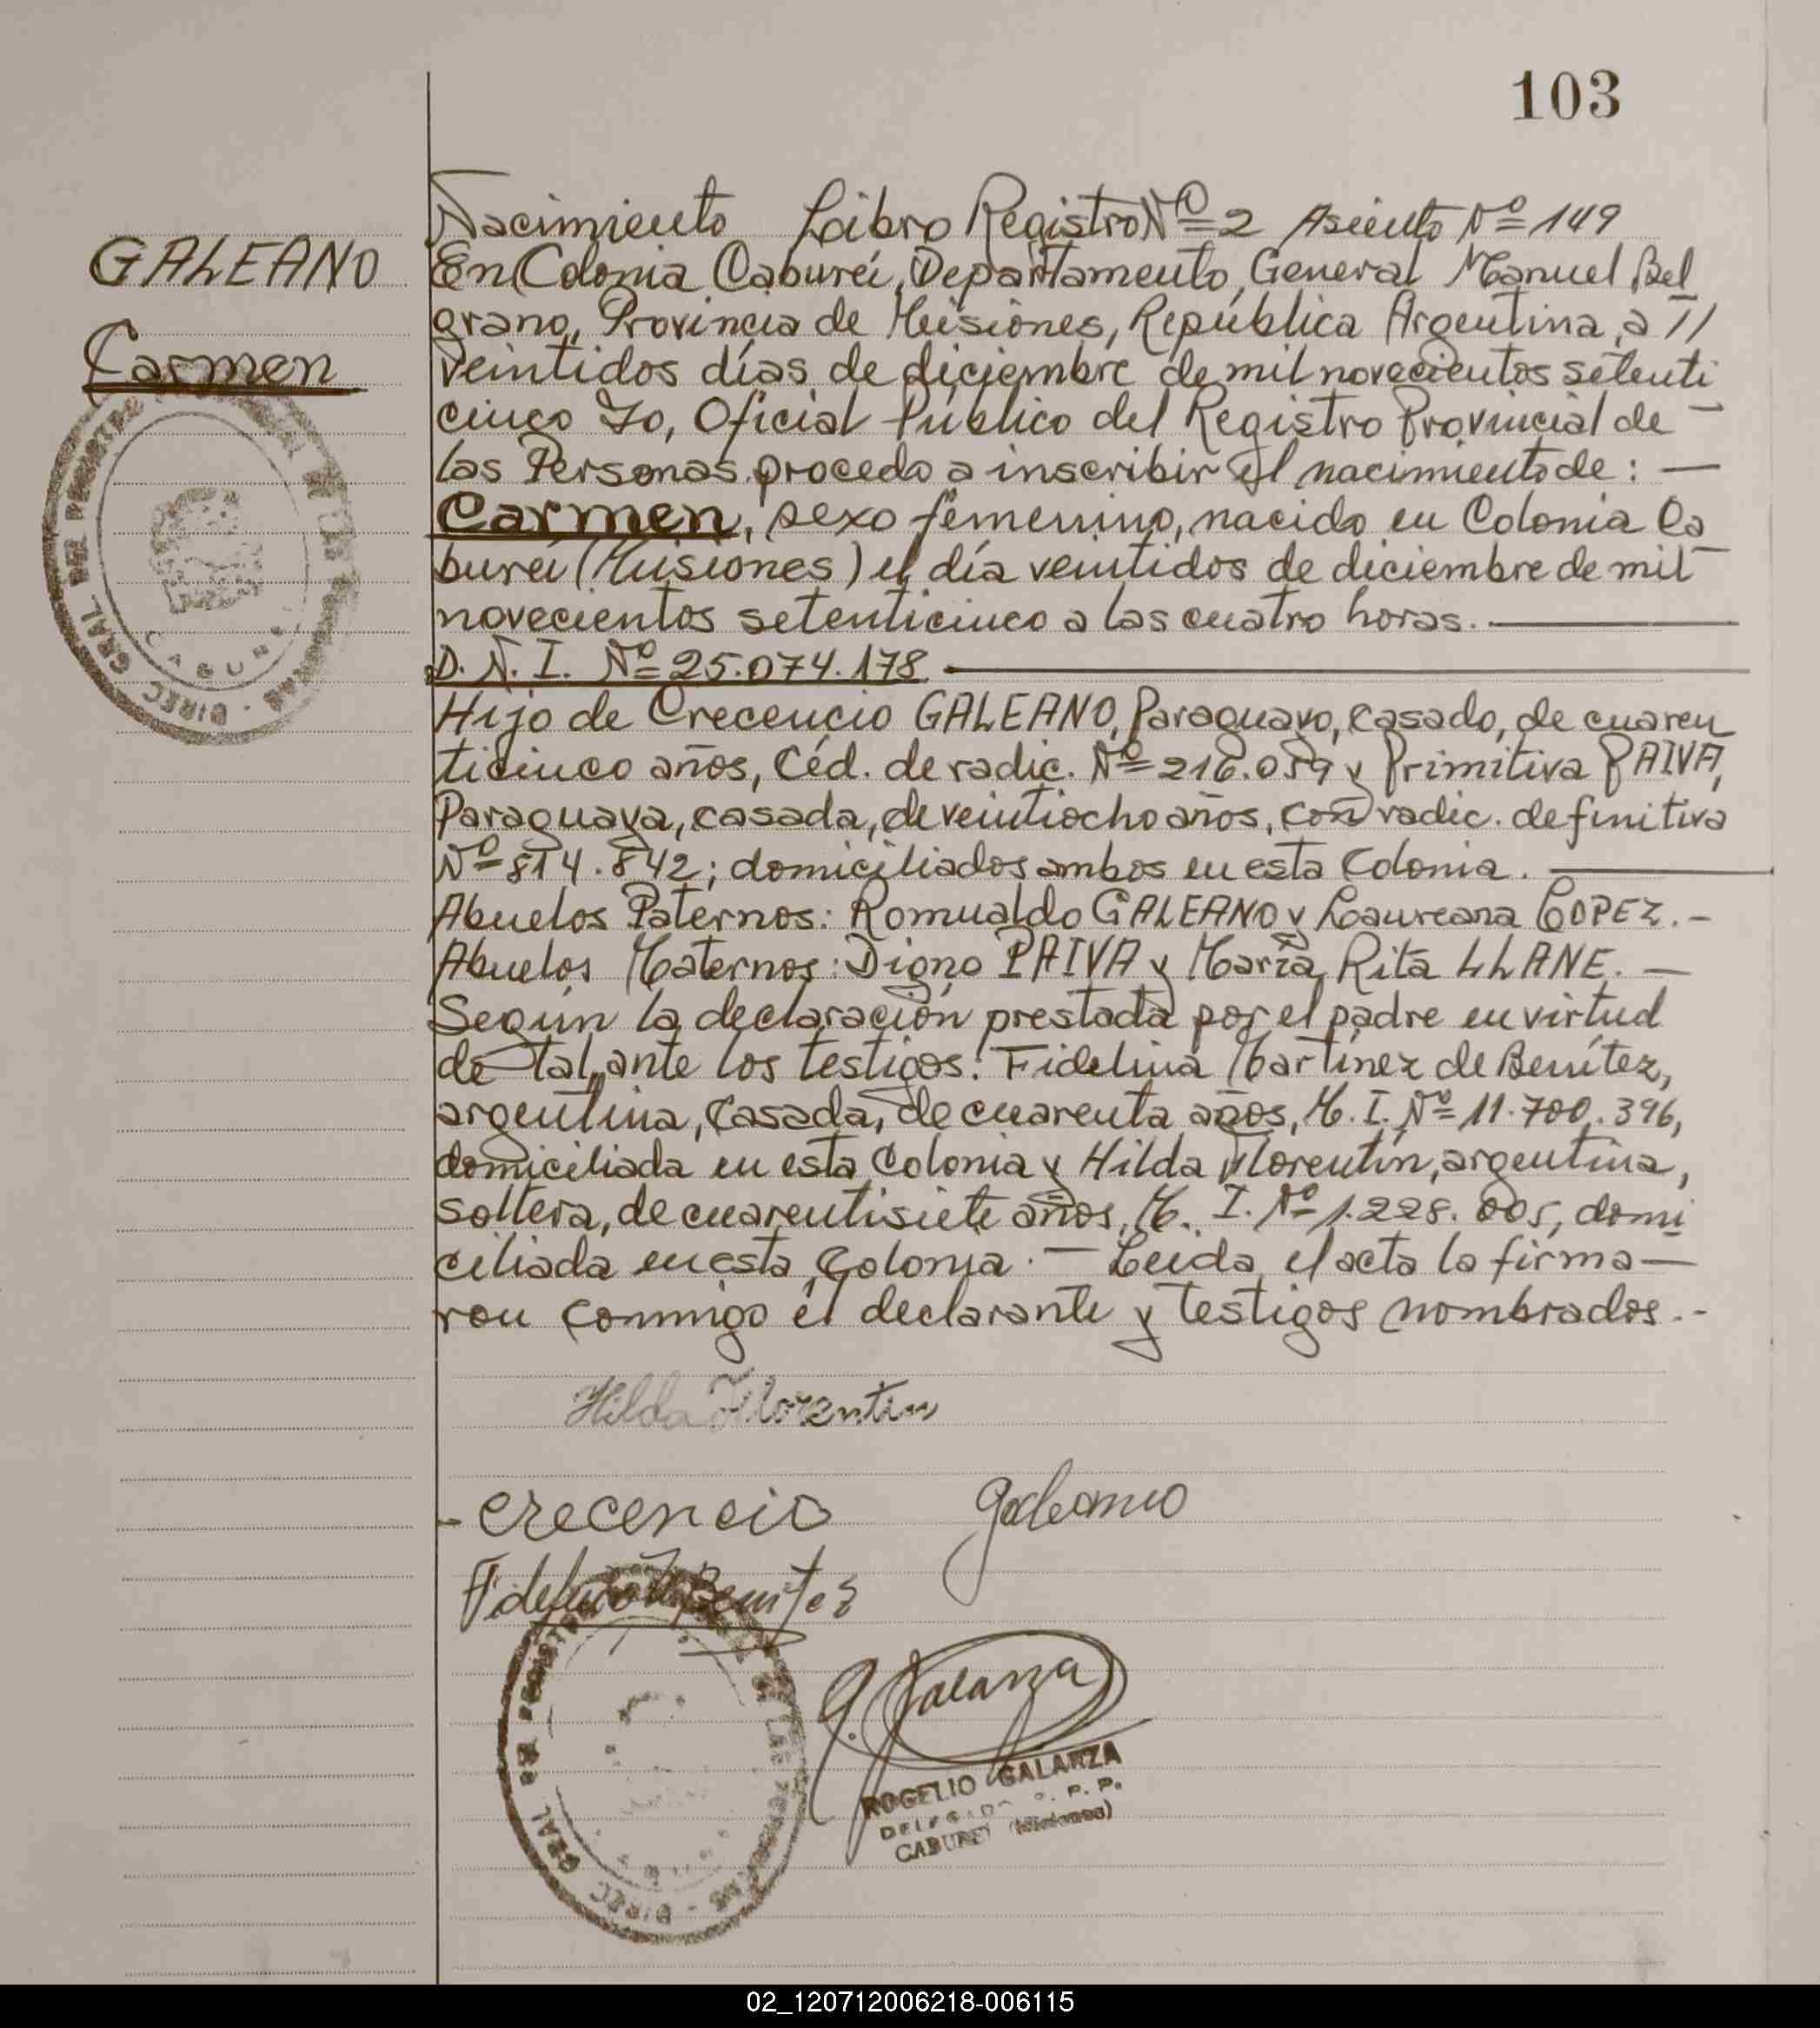 103
GALEANO
Carmen
Nacimiento Libro Registro Nº 2 Asiento Nº 149
En Colonia Caburéi, Departamento General Manuel Bel
grano, Provincia de Misiones, República Argentina, a //
veintidos días de diciembre de mil novecientos setenti
cinco Yo, Oficial Público del Registro Provincial de
las Personas procedo a inscribir el nacimiento de: —
Carmen, sexo femenino, nacido en Colonia Ca
buréi (Misiones) el día veintidos de diciembre de mil
novecientos setenticinco a las cuatro horas. —
D. N. I. Nº 25.074.178 —
Hijo de Crecencio GALEANO, Paraguayo, casado, de cuaren
ticinco años, Céd. de radic. Nº 216.059 y Primitiva PAIVA,
Paraguaya, casada, de veintiocho años, con radic. definitiva
Nº 814.842; domiciliados ambos en esta Colonia. —
Abuelos Paternos: Romualdo GALEANO y Laureana LOPEZ. -
Abuelos Maternos: Digno PAIVA y María Rita LLANE. —
Según la declaración prestada por el padre en virtud
de tal, ante los testigos: Fidelina Martínez de Benítez,
argentina, casada, de cuarenta años, M. I. Nº 11.700.396,
domiciliada en esta Colonia y Hilda Florentín, argentina,
soltera, de cuarentisiete años, M. I. Nº 1.228.005, domi
ciliada en esta Colonia. — Leida el acta la firma—
ron conmigo el declarante y testigos nombrados. -
Hilda Florentin
- Crecencio Galeano
Fidelina M Benitez
R. Galarza
ROGELIO GALARZA
DELEGADO R. P. P.
CABUREI (Misiones)
DIREC GRAL DEL REGISTRO
02_120712006218-006115